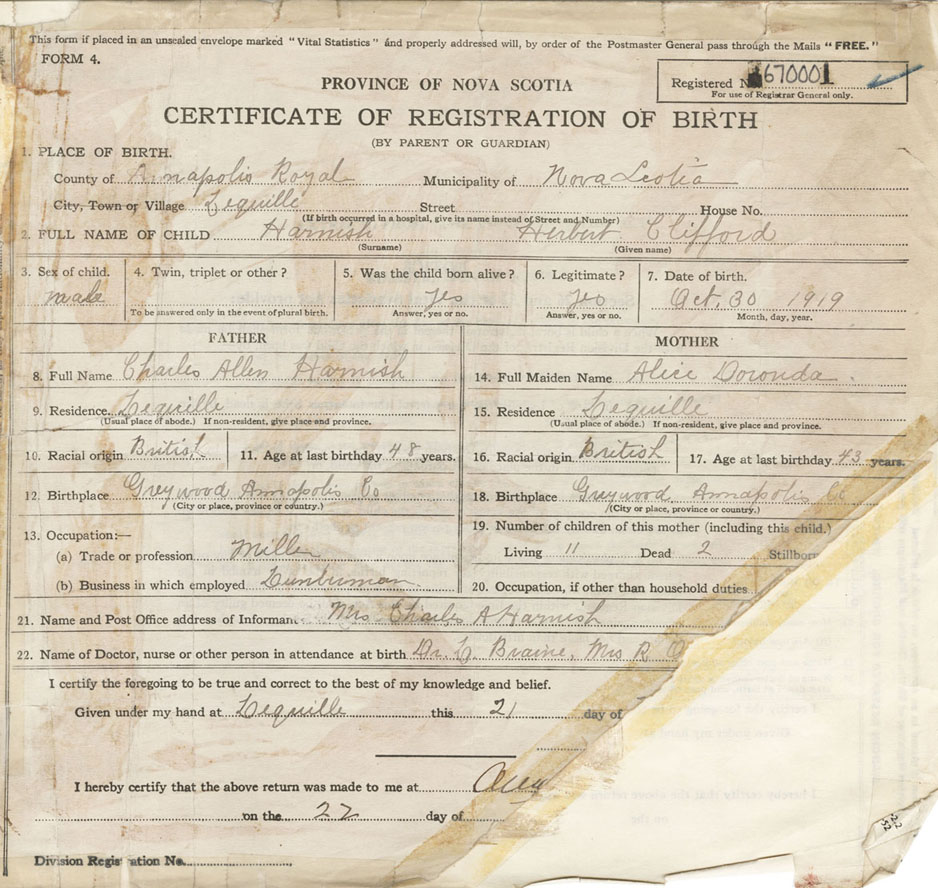 This form if placed in an unsealed envelope marked "Vital Statistics" and properly addressed will, by order of the Postmaster General pass through the Mails "FREE."
FORM 4.
Registered N 670001
For use of Registrar General only.
PROVINCE OF NOVA SCOTIA
CERTIFICATE OF REGISTRATION OF BIRTH
(BY PARENT OR GUARDIAN)
1. PLACE OF BIRTH.
County of Annapolis Royal Municipality of Nova Scotia
City, Town or Village Lequille Street House No.
(If birth occurred in a hospital, give its name instead of Street and Number)
2. FULL NAME OF CHILD Harnish Herbert Clifford
(Surname) (Given name)
3. Sex of child. 4. Twin, triplet or other? 5. Was the child born alive? 6. Legitimate? 7. Date of birth.
male yes yes Oct, 30 1919
To be answered only in the event of plural birth. Answer, yes or no. Answer, yes or no. Month, day, year.
FATHER
8. Full Name Charles Allen Harnish
9. Residence. Lequille
(Usual place of abode.) If non-resident, give place and province.
10. Racial origin British 11. Age at last birthday 48 years.
12. Birthplace Greywood Annapolis Co
(City or place, province or country.)
13. Occupation:—
(a) Trade or profession Miller
(b) Business in which employed Lumberman
MOTHER
14. Full Maiden Name Alice Doronda
15. Residence Lequille
(Usual place of abode.) If non-resident, give place and province.
16. Racial origin British 17. Age at last birthday 43 years.
18. Birthplace Greywood Annapolis Co
(City or place, province or country.)
19. Number of children of this mother (including this child.)
Living 11 Dead 2 Stillborn
20. Occupation, if other than household duties
21. Name and Post Office address of Informan Mrs Charles A Harnish
22. Name of Doctor, nurse or other person in attendance at birth Dr. L. Braine, Mrs R
I certify the foregoing to be true and correct to the best of my knowledge and belief.
Given under my hand at Lequille this 21 day of
I hereby certify that the above return was made to me at
on the 22 day of
Division Registration No.